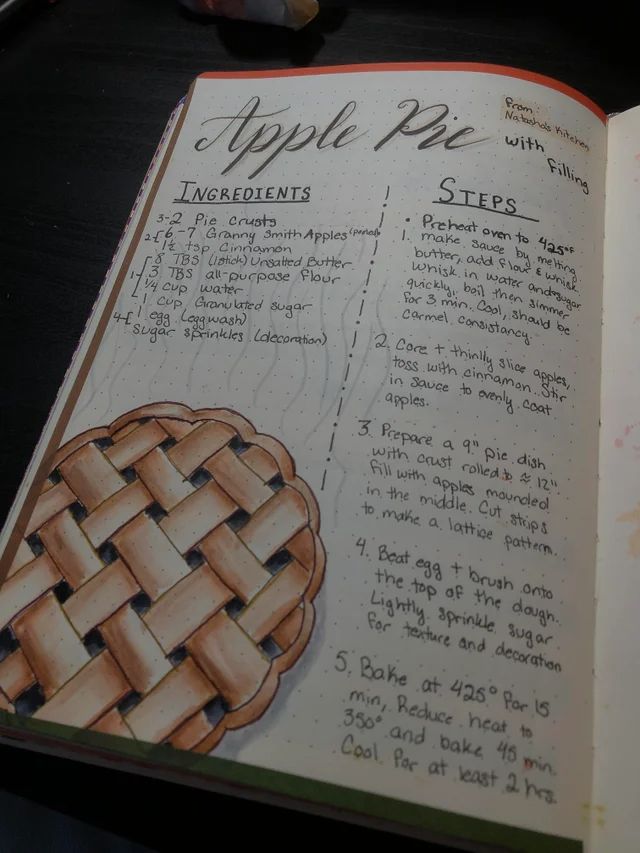 Apple Pie
From:
Natasha's Kitchen
with
filling
INGREDIENTS
3-2 Pie crusts
2-[6-7 Granny Smith Apples (peeled)
1½ tsp Cinnamon
8 TBS (1stick) Unsalted Butter
1-[3 TBS all-purpose flour
¼ cup water
1 cup Granulated sugar
4-[1 egg (eggwash)
sugar sprinkles (decoration)
STEPS
• Preheat oven to 425°F
1. make sauce by melting
butter, add flour & whisk.
Whisk in water and sugar
quickly, boil then simmer
for 3 min. Cool, should be
carmel consistancy.
2. Core + thinlly slice apples,
toss with cinnamon. Stir
in sauce to evenly coat
apples.
3. Prepare a 9" pie dish
with crust rolled to ≈ 12"
fill with apples mounded
in the middle. Cut strips
to make a lattice pattern.
4. Beat egg + brush onto
the top of the dough.
Lightly sprinkle sugar
for texture and decoration
5. Bake at 425° for 15
min, Reduce heat to
350° and bake 45 min.
Cool for at least 2 hrs.